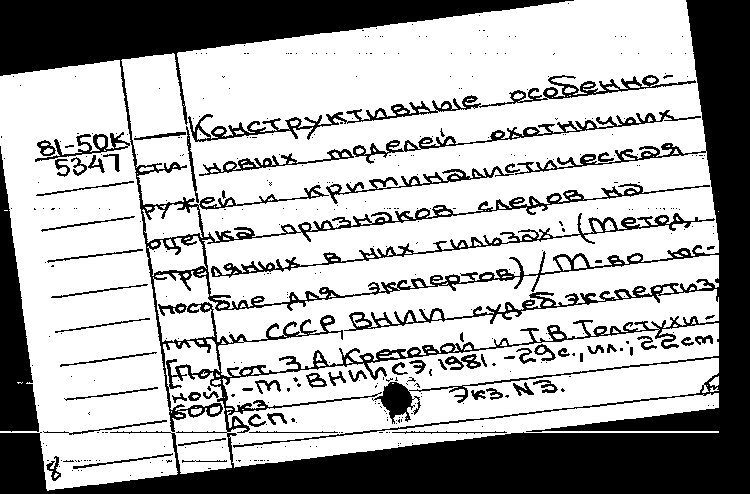 81-50К
5347
Конструктивные особенно-
сти новых моделей охотничьих
ружей и криминалистическая
оценка признаков следов на
стреляных в них гильзах: (Метод.
пособие для экспертов) / М-во юс-
тиции СССР, ВНИИ судеб. экспертиз;
[Подгот. З.А. Кретовой и Т.В. Толстухи-
ной]. - М.: ВНИИСЭ, 1981. - 29 с., ил.; 22 см.
600 экз. Экз. N3.
ДСП.
8